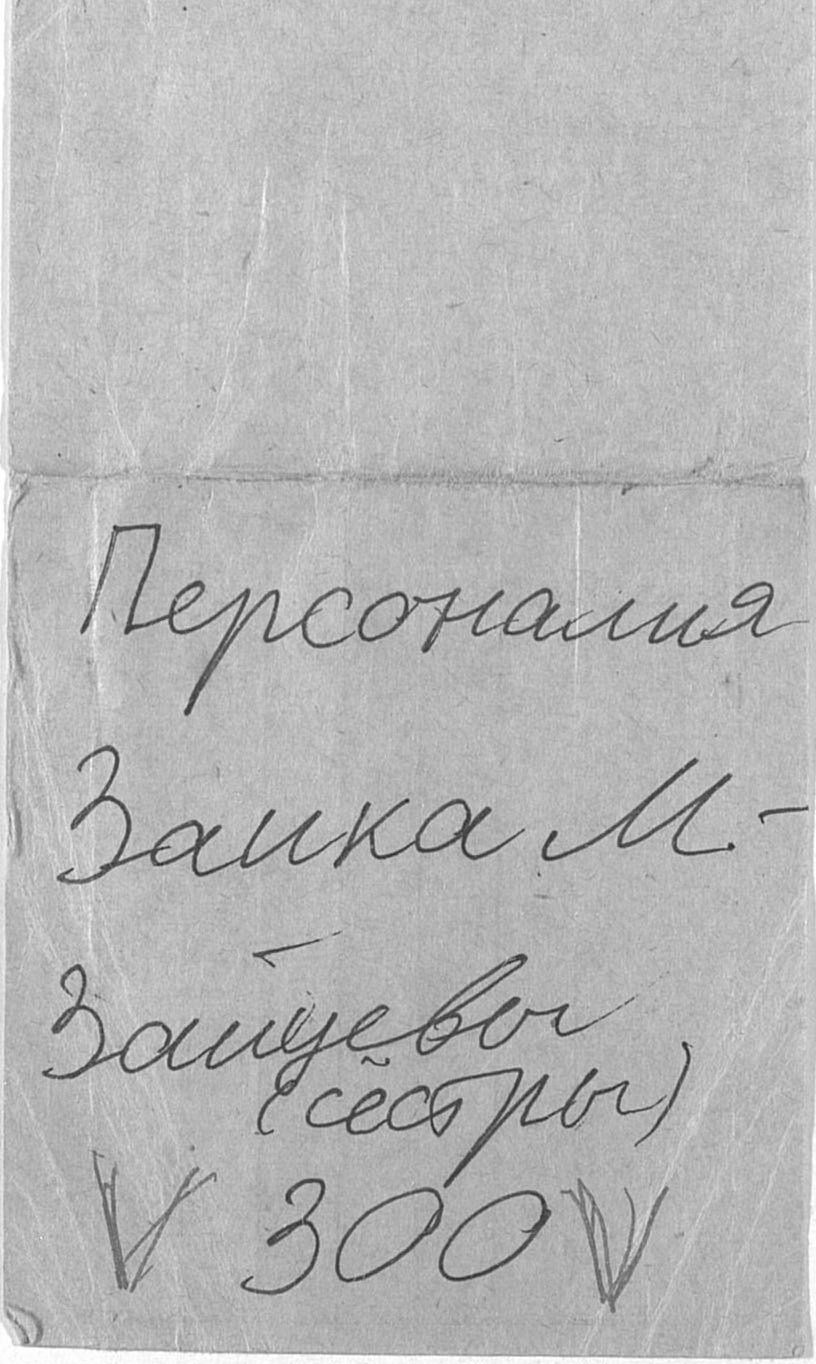 Персоналия
Заика М. -
Зайцевы
(сёстры)
V 300 V